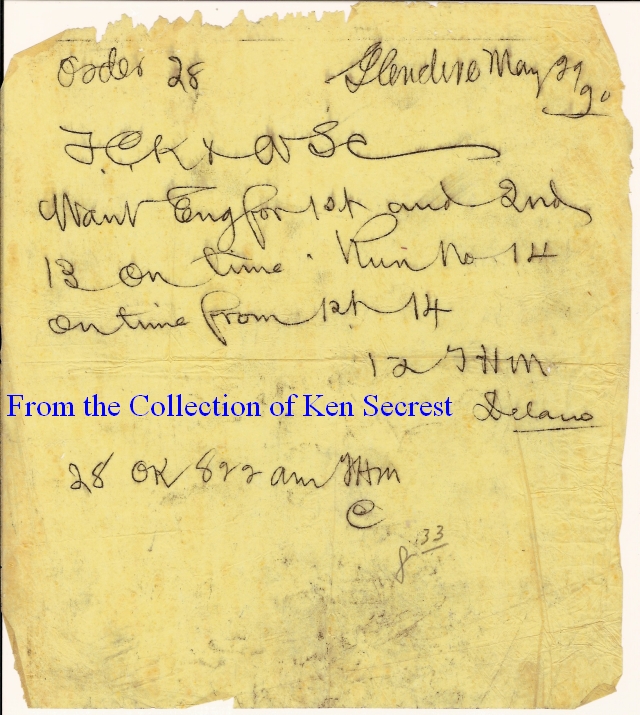 Order 28 Glendive May 29 90
J.C.K & N Sc
Want Eng for 1st and 2nd
13 on time. Run No 14
on time from 1st 14
12 J H M
From the Collection of Ken Secrest
Delano
28 OK 822 am JHM
C
8 33